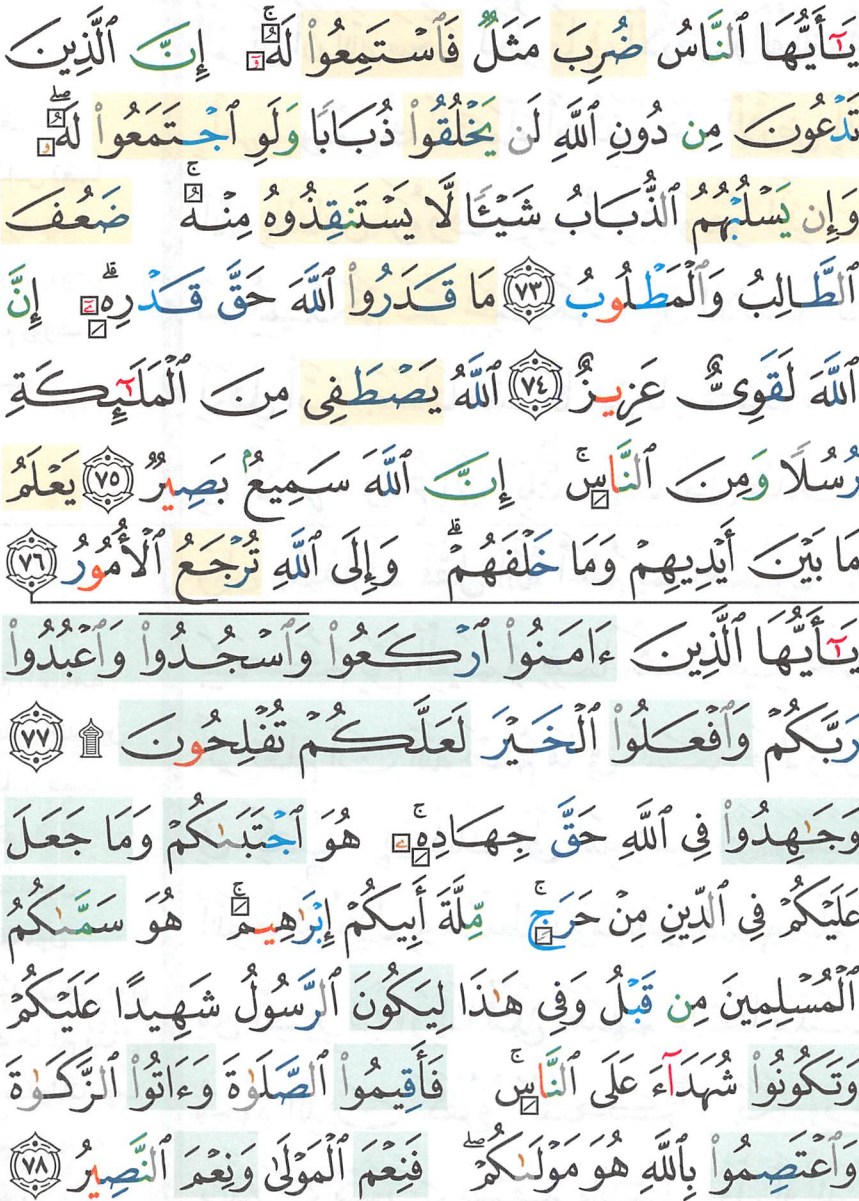 يَـٰٓأَيُّهَا ٱلنَّاسُ ضُرِبَ مَثَلٌ فَٱسْتَمِعُوا۟ لَهُۥٓ ۚ إِنَّ ٱلَّذِينَ
تَدْعُونَ مِن دُونِ ٱللَّهِ لَن يَخْلُقُوا۟ ذُبَابًا وَلَوِ ٱجْتَمَعُوا۟ لَهُۥ ۖ
وَإِن يَسْلُبْهُمُ ٱلذُّبَابُ شَيْـًٔا لَّا يَسْتَنقِذُوهُ مِنْهُ ۚ ضَعُفَ
ٱلطَّالِبُ وَٱلْمَطْلُوبُ ٧٣ مَا قَدَرُوا۟ ٱللَّهَ حَقَّ قَدْرِهِۦٓ ۗ إِنَّ
ٱللَّهَ لَقَوِىٌّ عَزِيزٌ ٧٤ ٱللَّهُ يَصْطَفِى مِنَ ٱلْمَلَـٰٓئِكَةِ
رُسُلًا وَمِنَ ٱلنَّاسِ ۚ إِنَّ ٱللَّهَ سَمِيعٌۢ بَصِيرٌ ٧٥ يَعْلَمُ
مَا بَيْنَ أَيْدِيهِمْ وَمَا خَلْفَهُمْ ۗ وَإِلَى ٱللَّهِ تُرْجَعُ ٱلْأُمُورُ ٧٦
يَـٰٓأَيُّهَا ٱلَّذِينَ ءَامَنُوا۟ ٱرْكَعُوا۟ وَٱسْجُدُوا۟ وَٱعْبُدُوا۟
رَبَّكُمْ وَٱفْعَلُوا۟ ٱلْخَيْرَ لَعَلَّكُمْ تُفْلِحُونَ ۩ ٧٧
وَجَـٰهِدُوا۟ فِى ٱللَّهِ حَقَّ جِهَادِهِۦ ۚ هُوَ ٱجْتَبَىٰكُمْ وَمَا جَعَلَ
عَلَيْكُمْ فِى ٱلدِّينِ مِنْ حَرَجٍ ۚ مِّلَّةَ أَبِيكُمْ إِبْرَٰهِيمَ ۚ هُوَ سَمَّىٰكُمُ
ٱلْمُسْلِمِينَ مِن قَبْلُ وَفِى هَـٰذَا لِيَكُونَ ٱلرَّسُولُ شَهِيدًا عَلَيْكُمْ
وَتَكُونُوا۟ شُهَدَآءَ عَلَى ٱلنَّاسِ ۚ فَأَقِيمُوا۟ ٱلصَّلَوٰةَ وَءَاتُوا۟ ٱلزَّكَوٰةَ
وَٱعْتَصِمُوا۟ بِٱللَّهِ هُوَ مَوْلَىٰكُمْ ۖ فَنِعْمَ ٱلْمَوْلَىٰ وَنِعْمَ ٱلنَّصِيرُ ٧٨